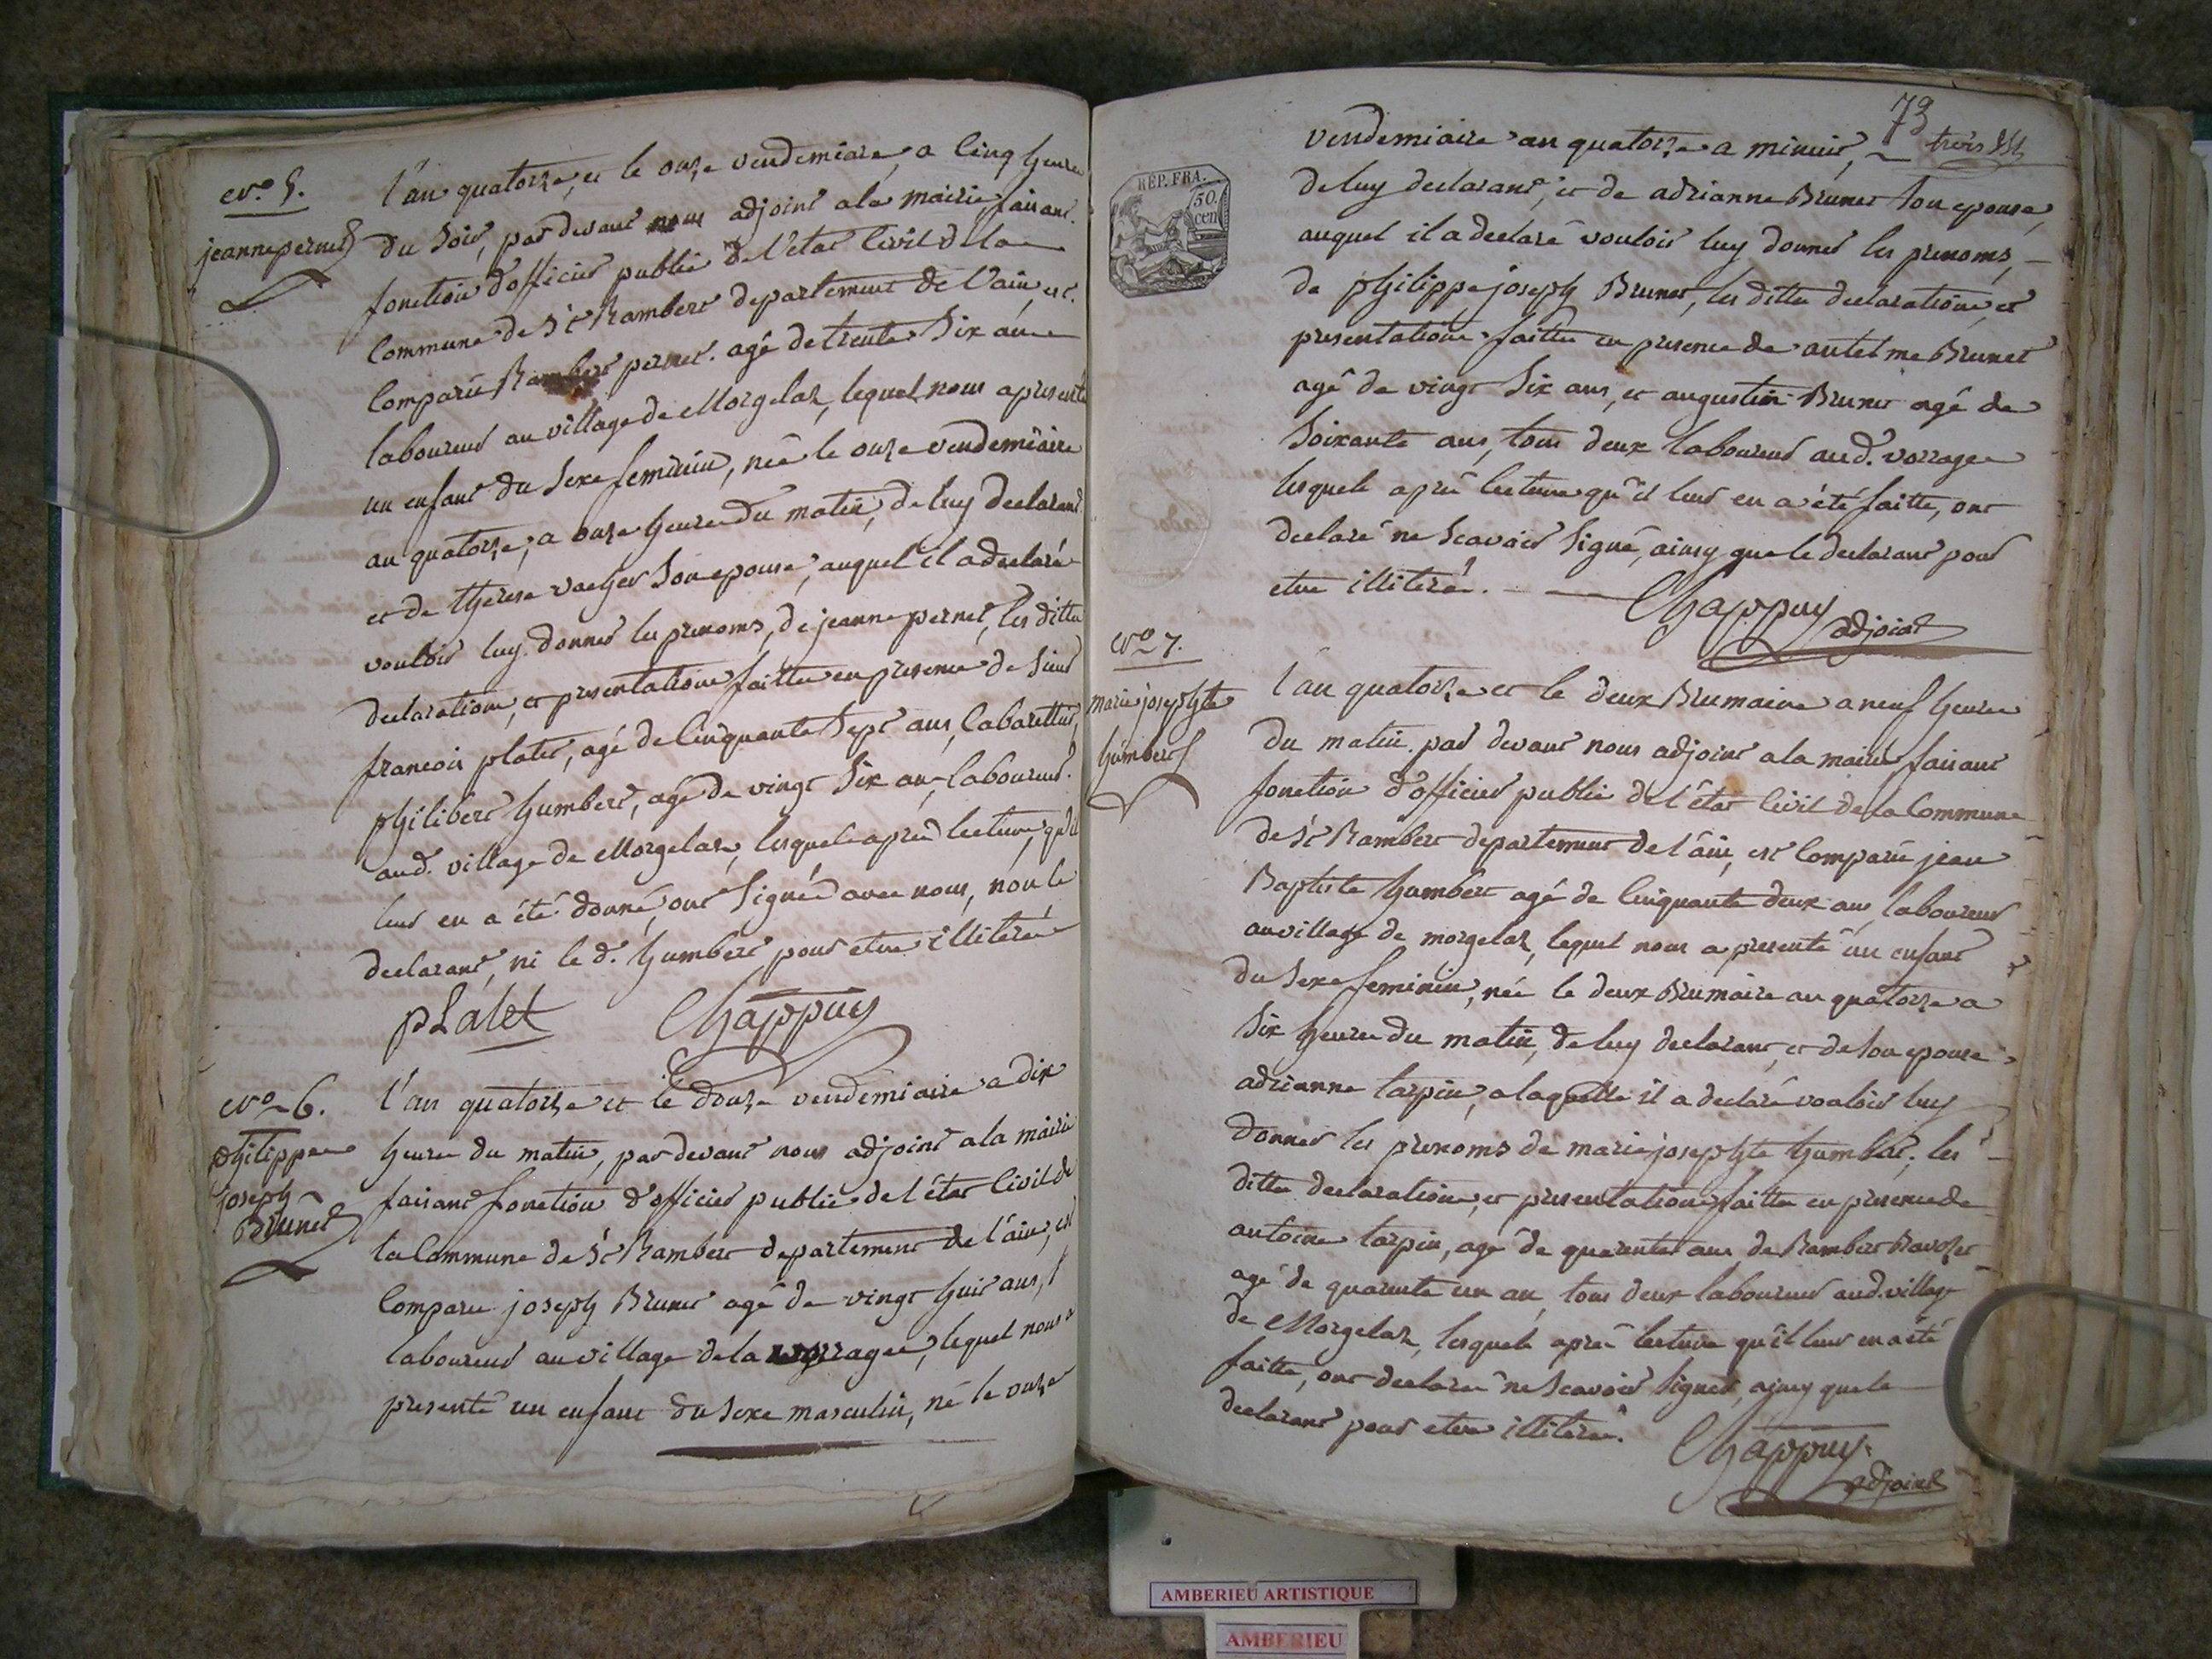 No. 5.
jeanne pernet
l'an quatorze, et le onze vendemiaire, a Cinq heures
du Soir, par devant nous adjoint a la mairie, faisant
fonction d'officier public de l'etat Civil de la
Commune de St Rambert departement de l'ain, est
Comparu Rambert pernet. agé de trente Six ans
laboureur au village de Morgelaz, lequel nous a presenté
un enfant du Sexe feminin, née le onze vendemiaire
an quatorze, a onze heures du matin, de luy declarant
et de therese vacher Son epouse, auquel il a declaré
vouloir luy donner les prenoms, de jeanne pernet, les dittes
declaration, et presentation faittes en presence de Sieur
francois platet, agé de Cinquante Sept ans, Cabarettier,
philibert humbert, agé de vingt Six ans, laboureur.
aud. village de Morgelaz, lesquels après lecture, qu'il
leur en a été donné, ont Signé avec nous, non le
declarant, ni le d. humbert pour etre illiteré
pLatet Chappuy
No. 6.
philippe
joseph
Brunet
l'an quatorze et le douze vendémiaire a dix
heures du matin, par devant nous adjoint a la mairie
faisant fonction d'officier public de l'état Civil de
la Commune de St Rambert departement de l'ain, est
Comparu joseph Brunet agé de vingt huit ans,
laboureur au village de la vorrages, lequel nous a
presenté un enfant du Sexe masculin, né le onze
73
trois
REP. FRA.
50.
cen
vendemiaire an quatorze a minuit,
de luy declarant, et de adrianne Brunet Son epouse,
auquel il a declaré vouloir luy donner les prenoms,
de philippe joseph Brunet, les dittes declaration, et
presentation faittes en presence de antelme Brunet
agé de vingt Six ans, et augustin Brunet agé de
Soixante ans, tous deux laboureur aud. vorrages
lesquels après lecture qu'il leur en a été faitte, ont
declaré ne Scavoir Signé, ainsy que le declarant pour
etre illiteré.
Chappuy
adjoint
No. 7.
marie josephte
humbert
l'an quatorze et le deux Brumaire a neuf heures
du matin. par devant nous adjoint a la mairie faisant
fonction d'officier public de l'état Civil de la Commune
de St Rambert departement de l'ain, est Comparu jean
Baptiste humbert agé de Cinquante deux ans laboureur
au village de morgelaz, lequel nous a presenté un enfant
du Sexe feminin, née le deux Brumaire an quatorze a
Six heures du matin, de luy declarant, et de Son epouse
adrianne tarpin, a laquelle il a declaré vouloir luy
donner les prenoms de marie josephte humbert, les
dittes declaration, et presentation faittes en presence de
antoine tarpin, agé de quarente ans, de Rambert Ravozet
agé de quarente un an, tous deux laboureur aud. village
de Morgelaz, lesquels après lecture qu'il leur en a été
faitte, ont declaré ne Scavoir Signer, ainsy que le
declarant pour etre illiteré.
Chappuy
adjoint
AMBERIEU ARTISTIQUE
AMBERIEU